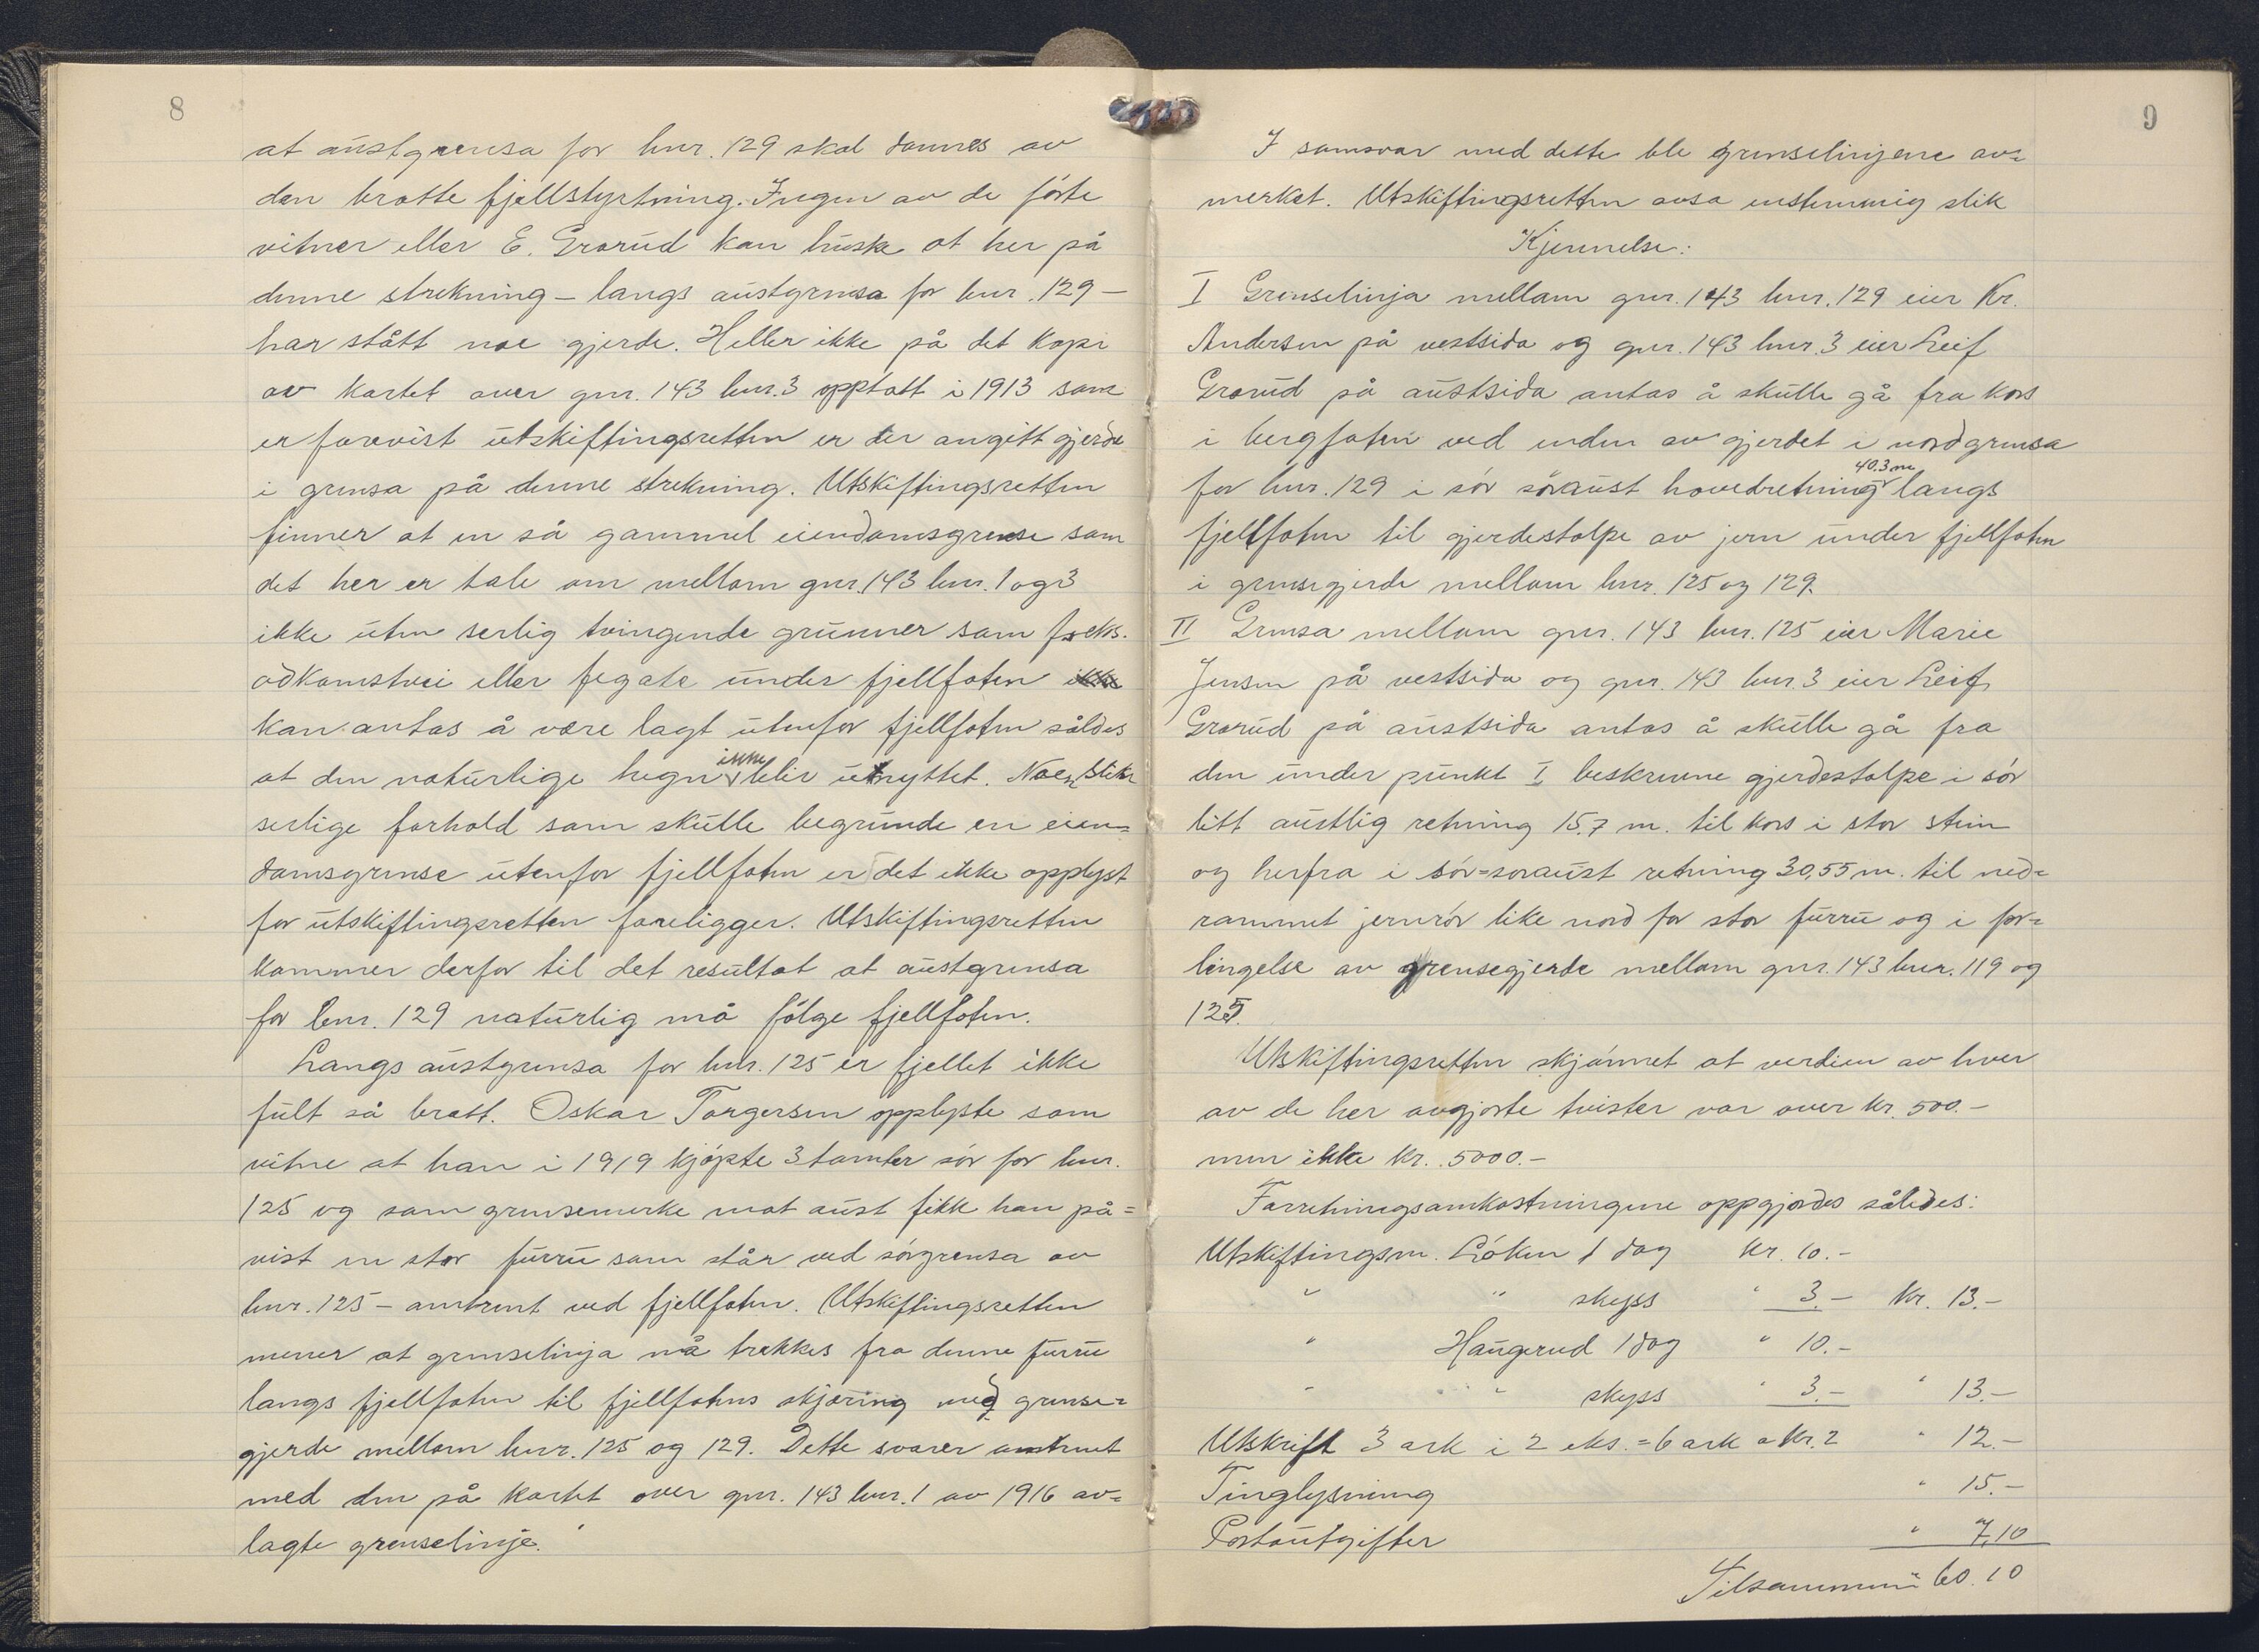 8
at austgrensa for bnr. 129 skal dannes av
den bratte fjellstyrtning. Ingen av de førte
vitner eller E. Grorud kan huske at her på
denne strekning - langs austgrensa for bnr. 129 -
har stått noe gjerde. Heller ikke på det kopi
av kartet over gnr. 143 bnr. 3 opptatt i 1913 som
er forevist utskiftingsretten er der angitt gjerde
i grensa på denne strekning. Utskiftingsretten
finner at en så gammel eiendomsgrense som
det her er tale om mellom gnr. 143 bnr. 1 og 3
ikke uten serlig tvingende grunner som f. eks.
adkomstvei eller fegate under fjellfoten ikke
kan antas å være lagt utenfor fjellfoten såldes
at den naturlige hegn ikke blir utnyttet. Noen slike
serlige forhold som skulle begrunde en eien=
domsgrense utenfor fjellfoten er det ikke opplyst
for utskiftingsretten foreligger. Utskiftingsretten
kommer derfor til det resultat at austgrensa
for bnr. 129 naturlig må følge fjellfoten.
Langs austgrensa for bnr. 125 er fjellet ikke
fult så bratt. Oskar Torgersen opplyste som
vitne at han i 1919 kjøpte 3 tomter sør for bnr.
125 og som grensemerke mot aust fikk han på=
vist en stor furru som står ved sørgrensa av
bnr. 125 - omtrent ved fjellfoten. Utskiftingsretten
mener at grenselinja må trekkes fra denne furru
langs fjellfoten til fjellfotens skjæring med grense=
gjerde mellom bnr. 125 og 129. Dette svarer omtrent
med den på kartet over gnr. 143 bnr. 1 av 1916 av=
lagte grenselinje.
9
I samsvar med dette ble grenselinjene av=
merket. Utskiftingsretten avsa enstemmig slik
Kjennelse:
I Grenselinja mellom gnr. 143 bnr. 129 eier Kr.
Andersen på vestsida og gnr. 143 bnr. 3 eier Leif
Grorud på austsida antas å skulle gå fra kors
i bergfoten ved enden av gjerdet i nordgrensa
40.3 m
for bnr. 129 i sør søraust hovedretning langs
fjellfoten til gjerdestolpe av jern under fjellfoten
i grensegjerde mellom bnr. 125 og 129.
II Grensa mellom gnr. 143 bnr. 125 eier Marie
Jensen på vestsida og gnr. 143 bnr. 3 eier Leif
Grorud på austsida antas å skulle gå fra
den under punkt I beskrevne gjerdestolpe i sør
litt austlig retning 15.7 m. til kors i stor stein
og herfra i sør=søraust retning 30,55 m. til ned=
rammet jernrør like nord for stor furru og i for=
lengelse av grensegjerde mellom gnr. 143 bnr. 119 og
125.
Utskiftingsretten skjønnet at verdien av hver
av de her avgjorte tvister var over kr. 500.-
men ikke kr. 5000.-
Forretningsomkostningene oppgjordes således:
Utskiftingsm. Løken 1 dag kr. 10.-
" " skyss " 3.- kr. 13.-
" Haugerud 1 dag " 10.-
" " skyss " 3.- " 13.-
Utskrift 3 ark i 2 eks. = 6 ark a kr. 2 " 12.-
Tinglysning " 15.-
Portoutgifter " 7,10
Tilsammen 60.10